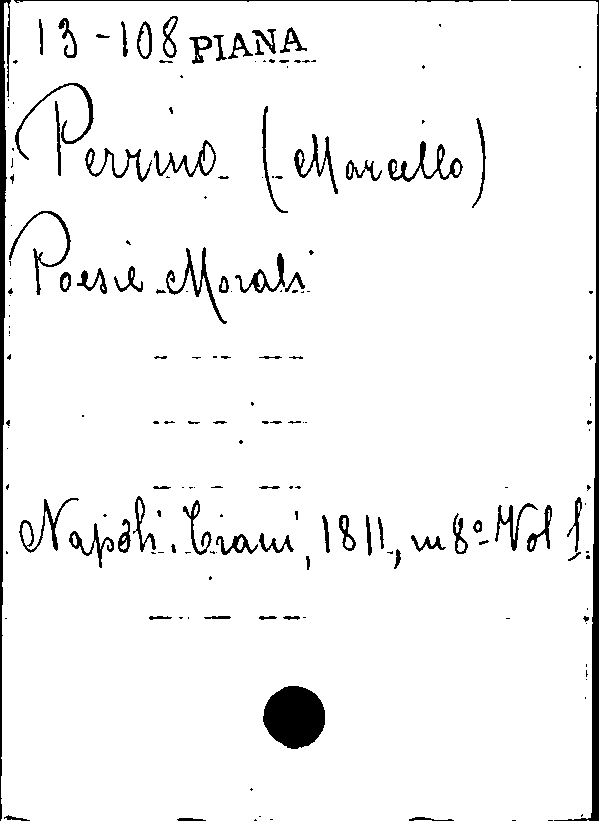 13-108 PIANA
Perrino (Marcello)
Poesie Morali
Napoli. Trani, 1811, in 8º Vol 1